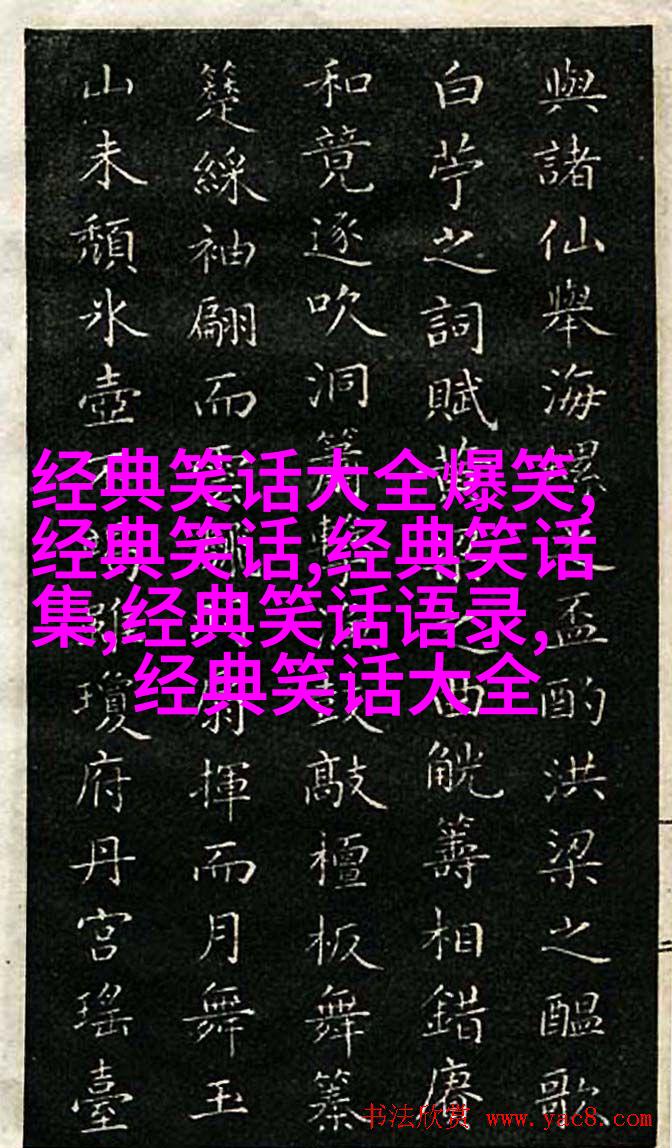 與諸仙舉海螺之盃酌洪梁之醞歌
白苧之詞賦之曲觥籌相錯賡
和竟逐吹洞簫擊鼓敲檀板舞
綵袖翩而扇揮而月舞玉
山未頹氷壺不雖瓊府丹宮瑤臺
经典笑话大全爆笑,
经典笑话,经典笑话
集,经典笑话语录,
经典笑话大全
书法欣赏 www.yac8.com